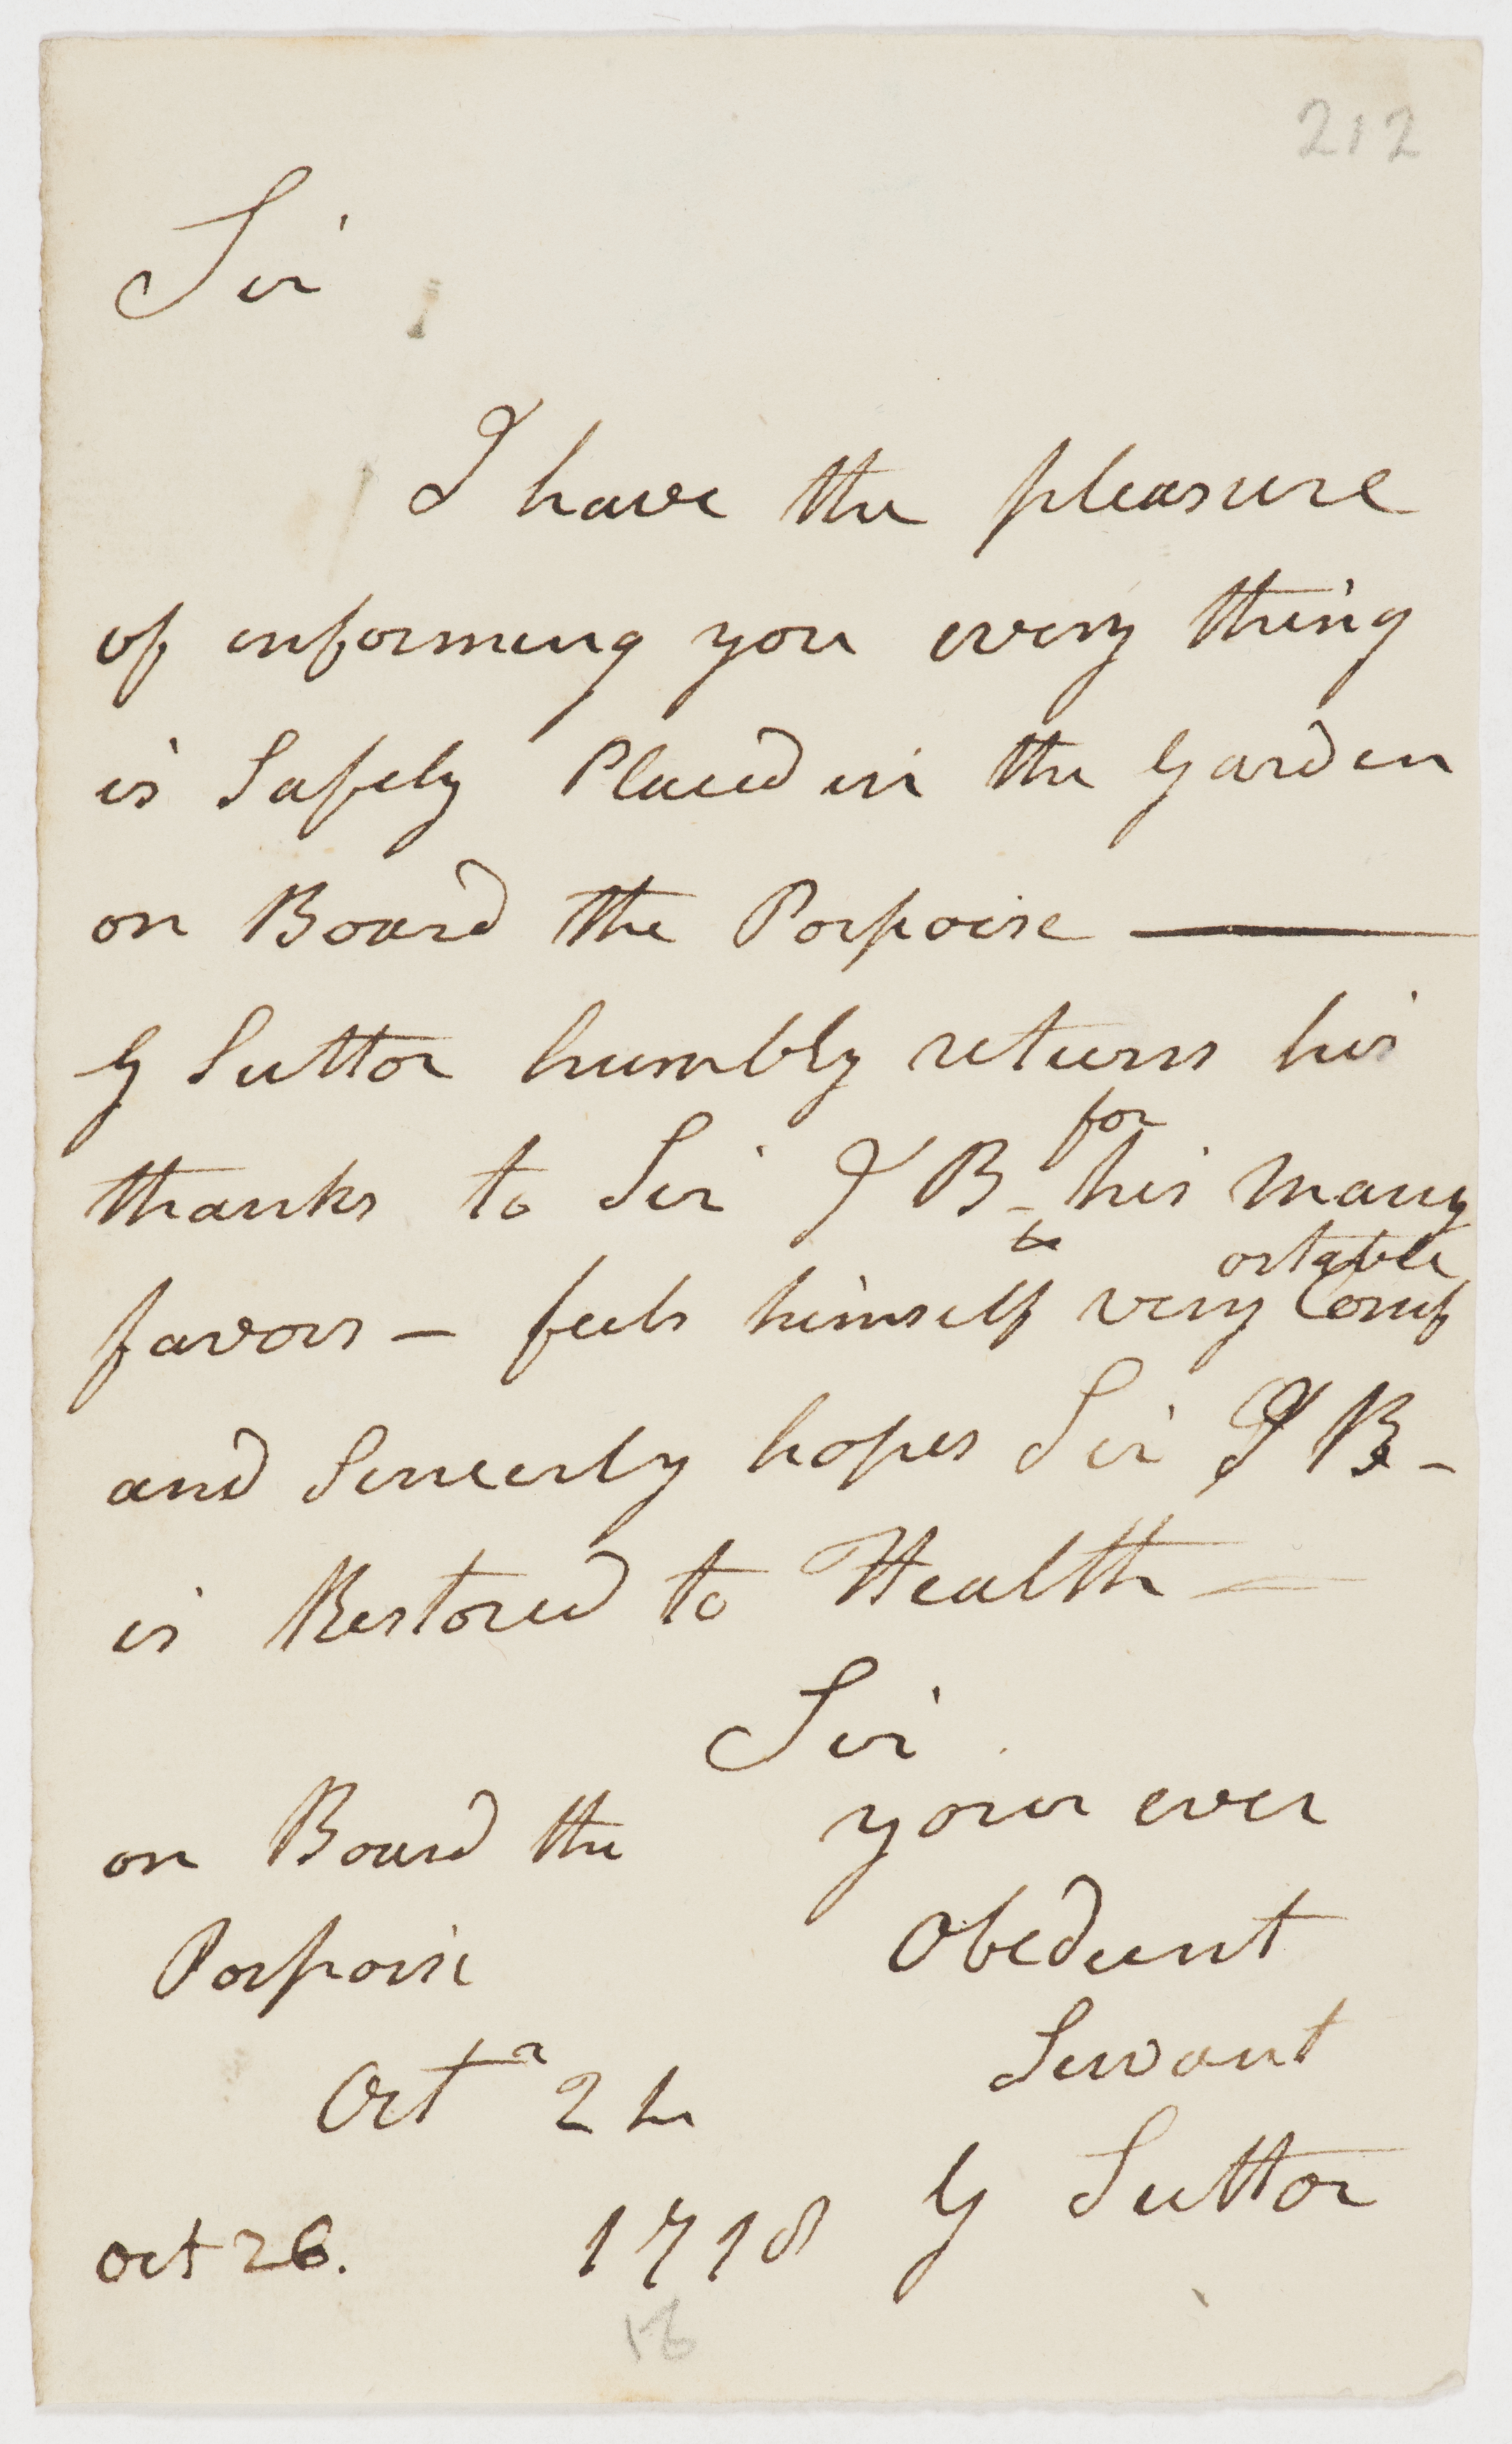 212
Sir
I have the pleasure
of informing you every thing
is Safely Placed in the Garden
on Board the Porpoise —
G Suttor humbly returns his
thanks to Sir J B - for his many
favors — feels himself very Comfortable
and Sincerly hopes Sir J B -
is Restored to Health —
Sir
on Board the your ever
Porpoise Obedient
Servant
Octr 24
G Suttor
oct 26. 1798